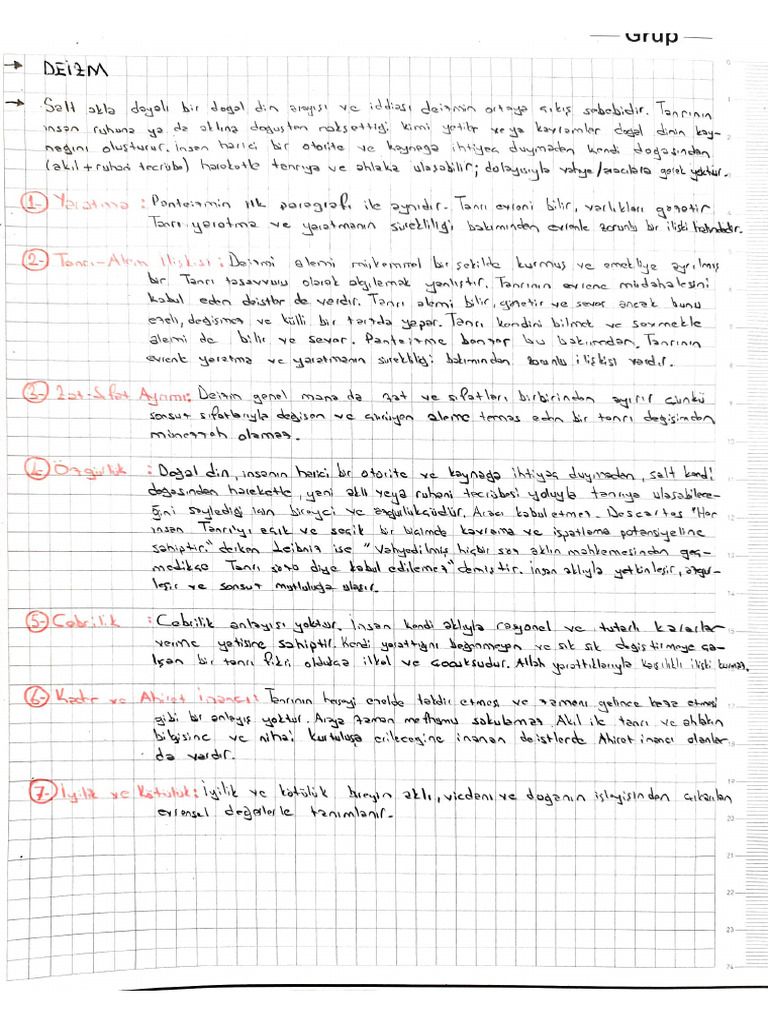 Grup
→ DEİZM
→ Salt akla dayalı bir doğal din arayışı ve iddiası deizmin ortaya çıkış sebebidir. Tanrının
insan ruhuna ya da aklına doğuştan nakşettiği kimi yetiler veya kavramlar doğal dinin kay-
nağını oluşturur. İnsan harici bir otorite ve kaynağa ihtiyaç duymadan kendi doğasından
(akıl + ruhani tecrübe) hareketle tanrıya ve ahlaka ulaşabilir; dolayısıyla vahye/aracılara gerek yoktur.
1- Yaratma : Panteizmin ilk paragrafı ile aynıdır. Tanrı evreni bilir, varlıkları gözetir
Tanrı yaratma ve yaratmanın sürekliliği bakımından evrenle zorunlu bir ilişki halindedir.
2- Tanrı-Alem İlişkisi : Deizmi alemi mükemmel bir şekilde kurmuş ve emekliye ayrılmış
bir Tanrı tasavvuru olarak algılamak yanlıştır. Tanrının evrene müdahalesini
kabul eden deistler de vardır. Tanrı alemi bilir, gözetir ve sever ancak bunu
ezeli, değişmez ve külli bir tarzda yapar. Tanrı kendini bilmek ve sevmekle
alemi de bilir ve sever. Panteizme benzer bu bakımdan. Tanrının
evrenle yaratma ve yaratmanın sürekliliği bakımından zorunlu ilişkisi vardır.
3- Zat-Sıfat Ayrımı: Deizm genel mana da zat ve sıfatları birbirinden ayırır çünkü
sonsuz sıfatlarıyla değişen ve çürüyen aleme temas eden bir tanrı değişimden
münezzeh olamaz.
4- Özgürlük : Doğal din, insanın harici bir otorite ve kaynağa ihtiyaç duymadan, salt kendi
doğasından hareketle, yani akli veya ruhani tecrübesi yoluyla tanrıya ulaşabilece-
ğini söylediği için bireyci ve özgürlükçüdür. Aracı kabul etmez. Descartes "Her
insan Tanrı'yı açık ve seçik bir biçimde kavrama ve ispatlama potansiyeline
sahiptir." derken Leibniz ise "Vahyedilmiş hiçbir şey aklın mahkemesinden geç-
medikçe Tanrı sözü diye kabul edilemez" demiştir. İnsan aklıyla yetkinleşir, özgür-
leşir ve sonsuz mutluluğa ulaşır.
5- Cebrilik : Cebrilik anlayışı yoktur. İnsan kendi aklıyla rasyonel ve tutarlı kararlar
verme yetisine sahiptir. Kendi yarattığını beğenmeyen ve sık sık değiştirmeye ça-
lışan bir tanrı fikri oldukça ilkel ve çocuksudur. Allah yarattıklarıyla karşılıklı ilişki kurmaz.
6- Kader ve Ahiret İnancı : Tanrının herşeyi ezelde takdir etmes ve zamanı gelince kaza etmesi
gibi bir anlayış yoktur. Araya zaman mefhumu sokulamaz. Akıl ile tanrı ve ahlakın
bilgisine ve nihai kurtuluşa erileceğine inanan deistlerde Ahiret inancı olanlar
da vardır.
7- İyilik ve Kötülük : İyilik ve kötülük bireyin aklı, vicdanı ve doğanın işleyişinden çıkarılan
evrensel değerlerle tanımlanır.